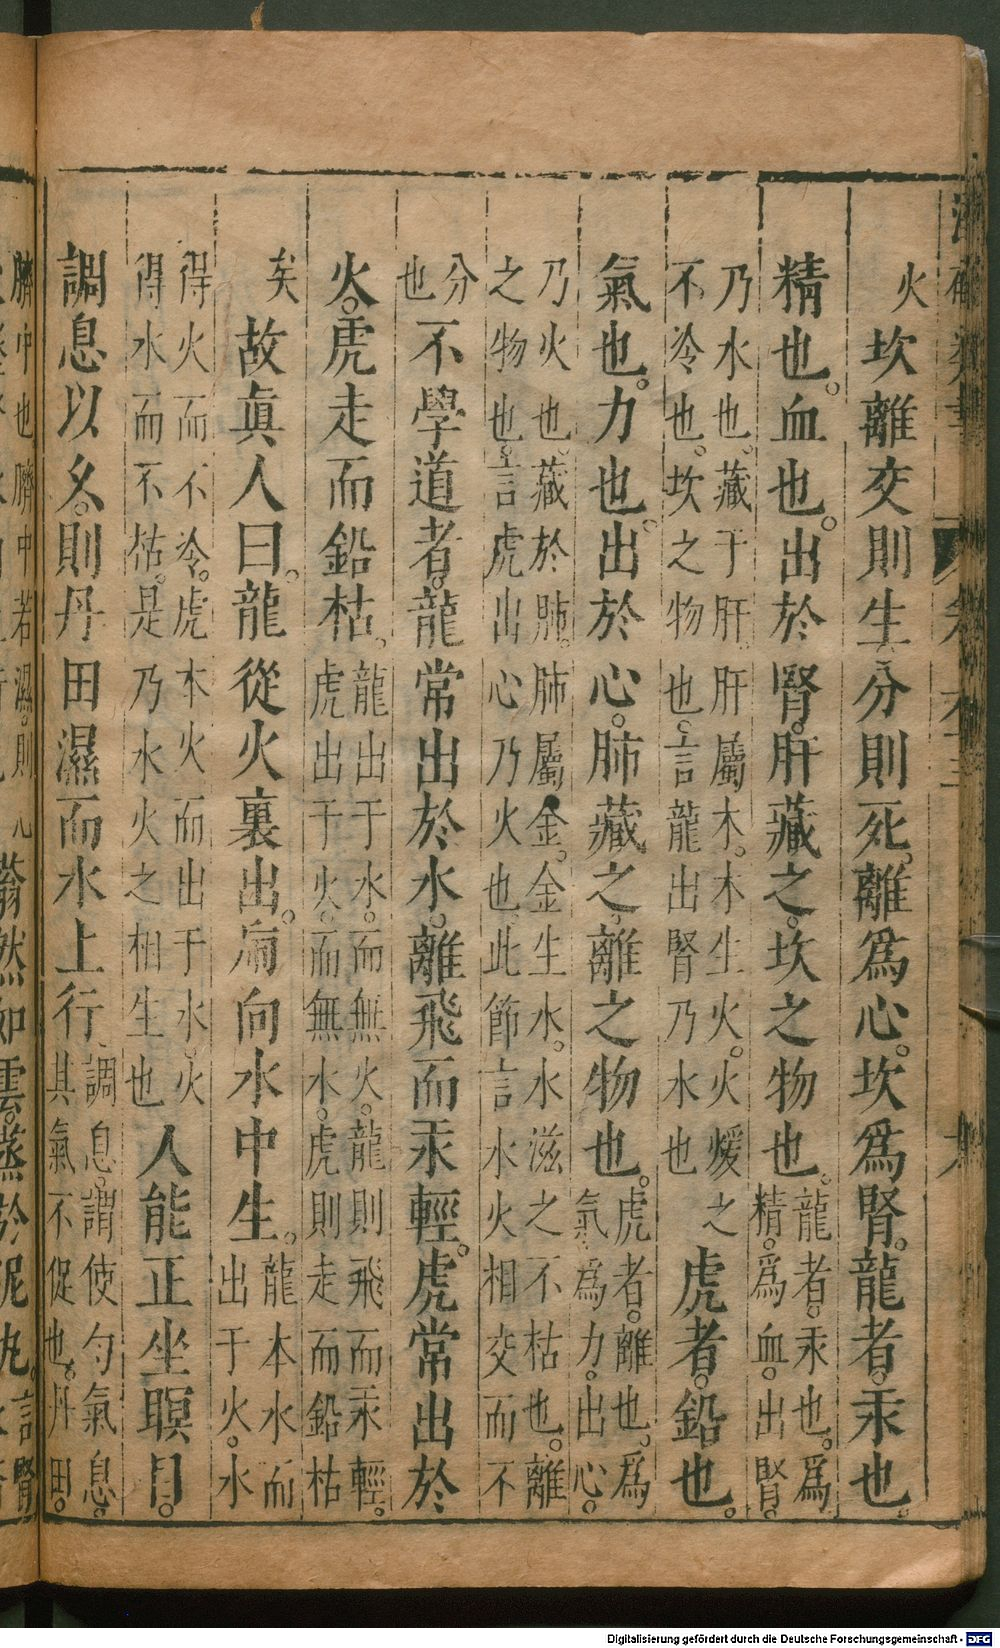 火
坎離交則生分則死。離爲心。坎爲腎。龍者。汞也。
精也。血也。出於腎。肝藏之。坎之物也。
龍者。汞也。爲
精。爲血。出腎。
乃水也。藏于肝。肝屬木。木生火。火煖之
不冷也。坎之物也。言龍出腎乃水也
虎者。鉛也。
氣也。力也。出於心。肺藏之。離之物也。
虎者。離也。爲
氣爲力。出心。
乃火也。藏於肺。肺屬金。金生水。水滋之不枯也。離
之物也。言虎出心乃火也此節言水火相交而不
分
也
不學道者。龍常出於水。離飛而汞輕。虎常出於
火。虎走而鉛枯。
龍出于水。而無火。龍則飛而汞輕。
虎出于火。而無水。虎則走而鉛枯
矣
故眞人曰。龍從火裏出。虎向水中生。
龍本水而
出于火。水
得火而不冷。虎木火而出于水。火
得水而不枯。是乃水火之相生也
人能正坐瞑目。
調息以久。則丹田濕而水上行
調息。謂使勻氣息。
其氣不促也。丹田。
臍中也臍中若濕。則
蓊然如雲。蒸於泥丸。
言腎
Digitalisierung gefördert durch die Deutsche Forschungsgemeinschaft - DFG